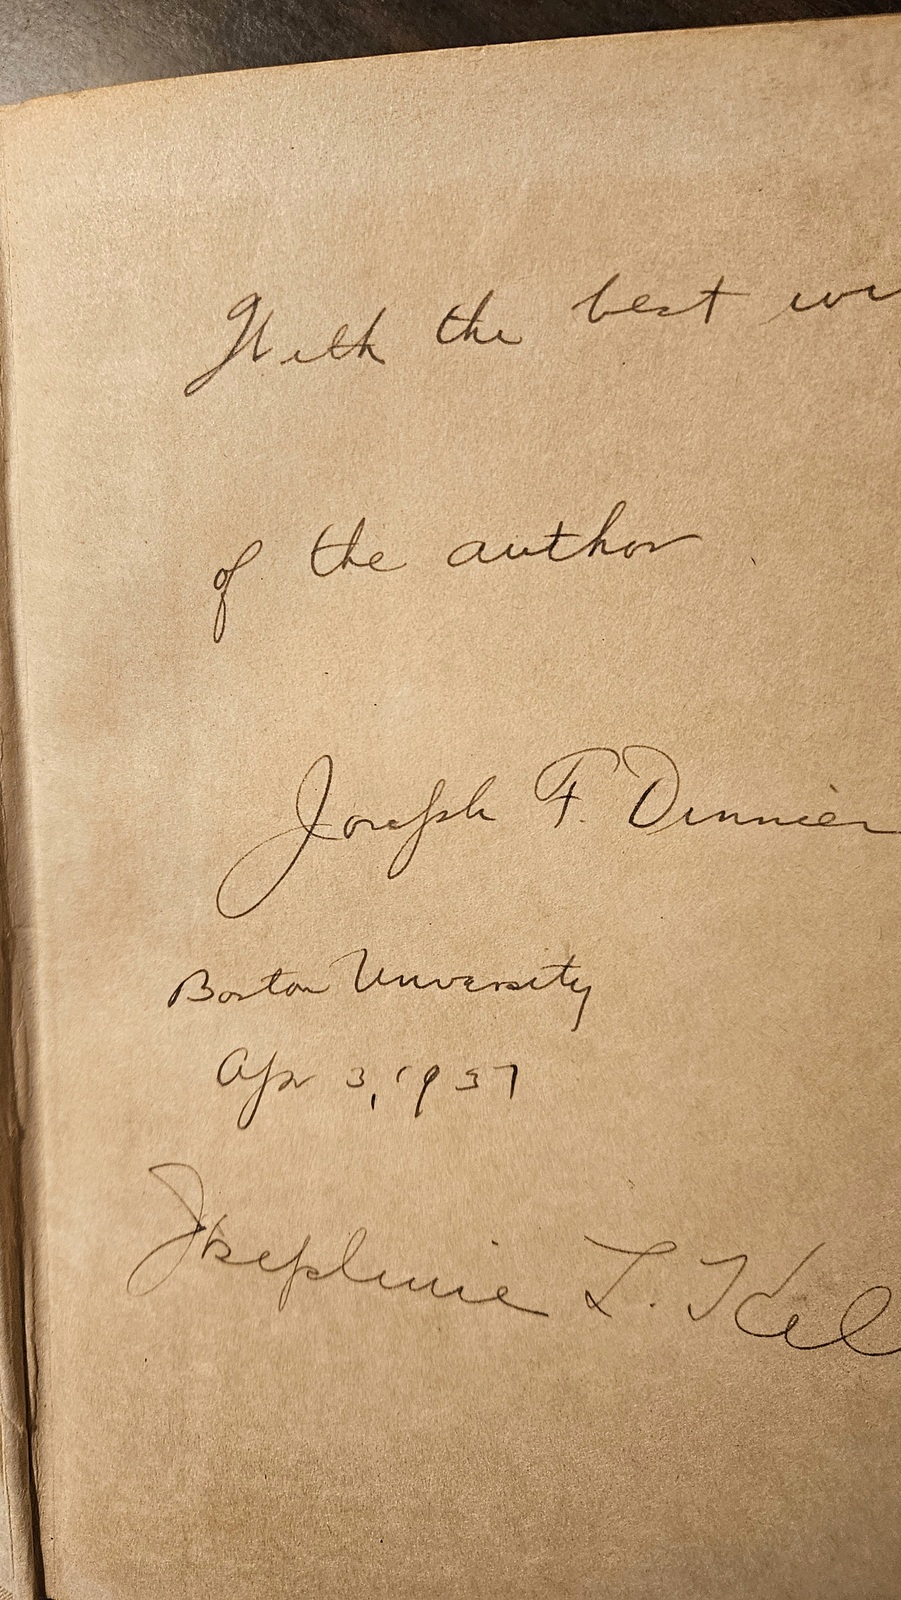 With the best
of the author
Joseph F. Dinneen
Boston University
Apr 3, 1937
Josephine L.